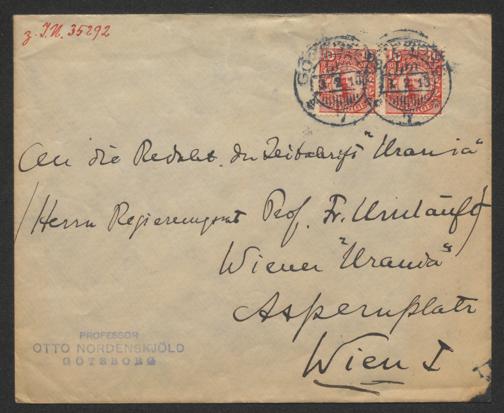 z. I.N. 35292
GÖTEBORG
3. 2. 13
An die Redakt. der Zeitschrift "Urania"
(Herrn Regierungsrat Prof. Fr. Umlauft)
Wiener "Urania"
Aspernplatz
Wien I
PROFESSOR
OTTO NORDENSKJÖLD
GÖTEBORG